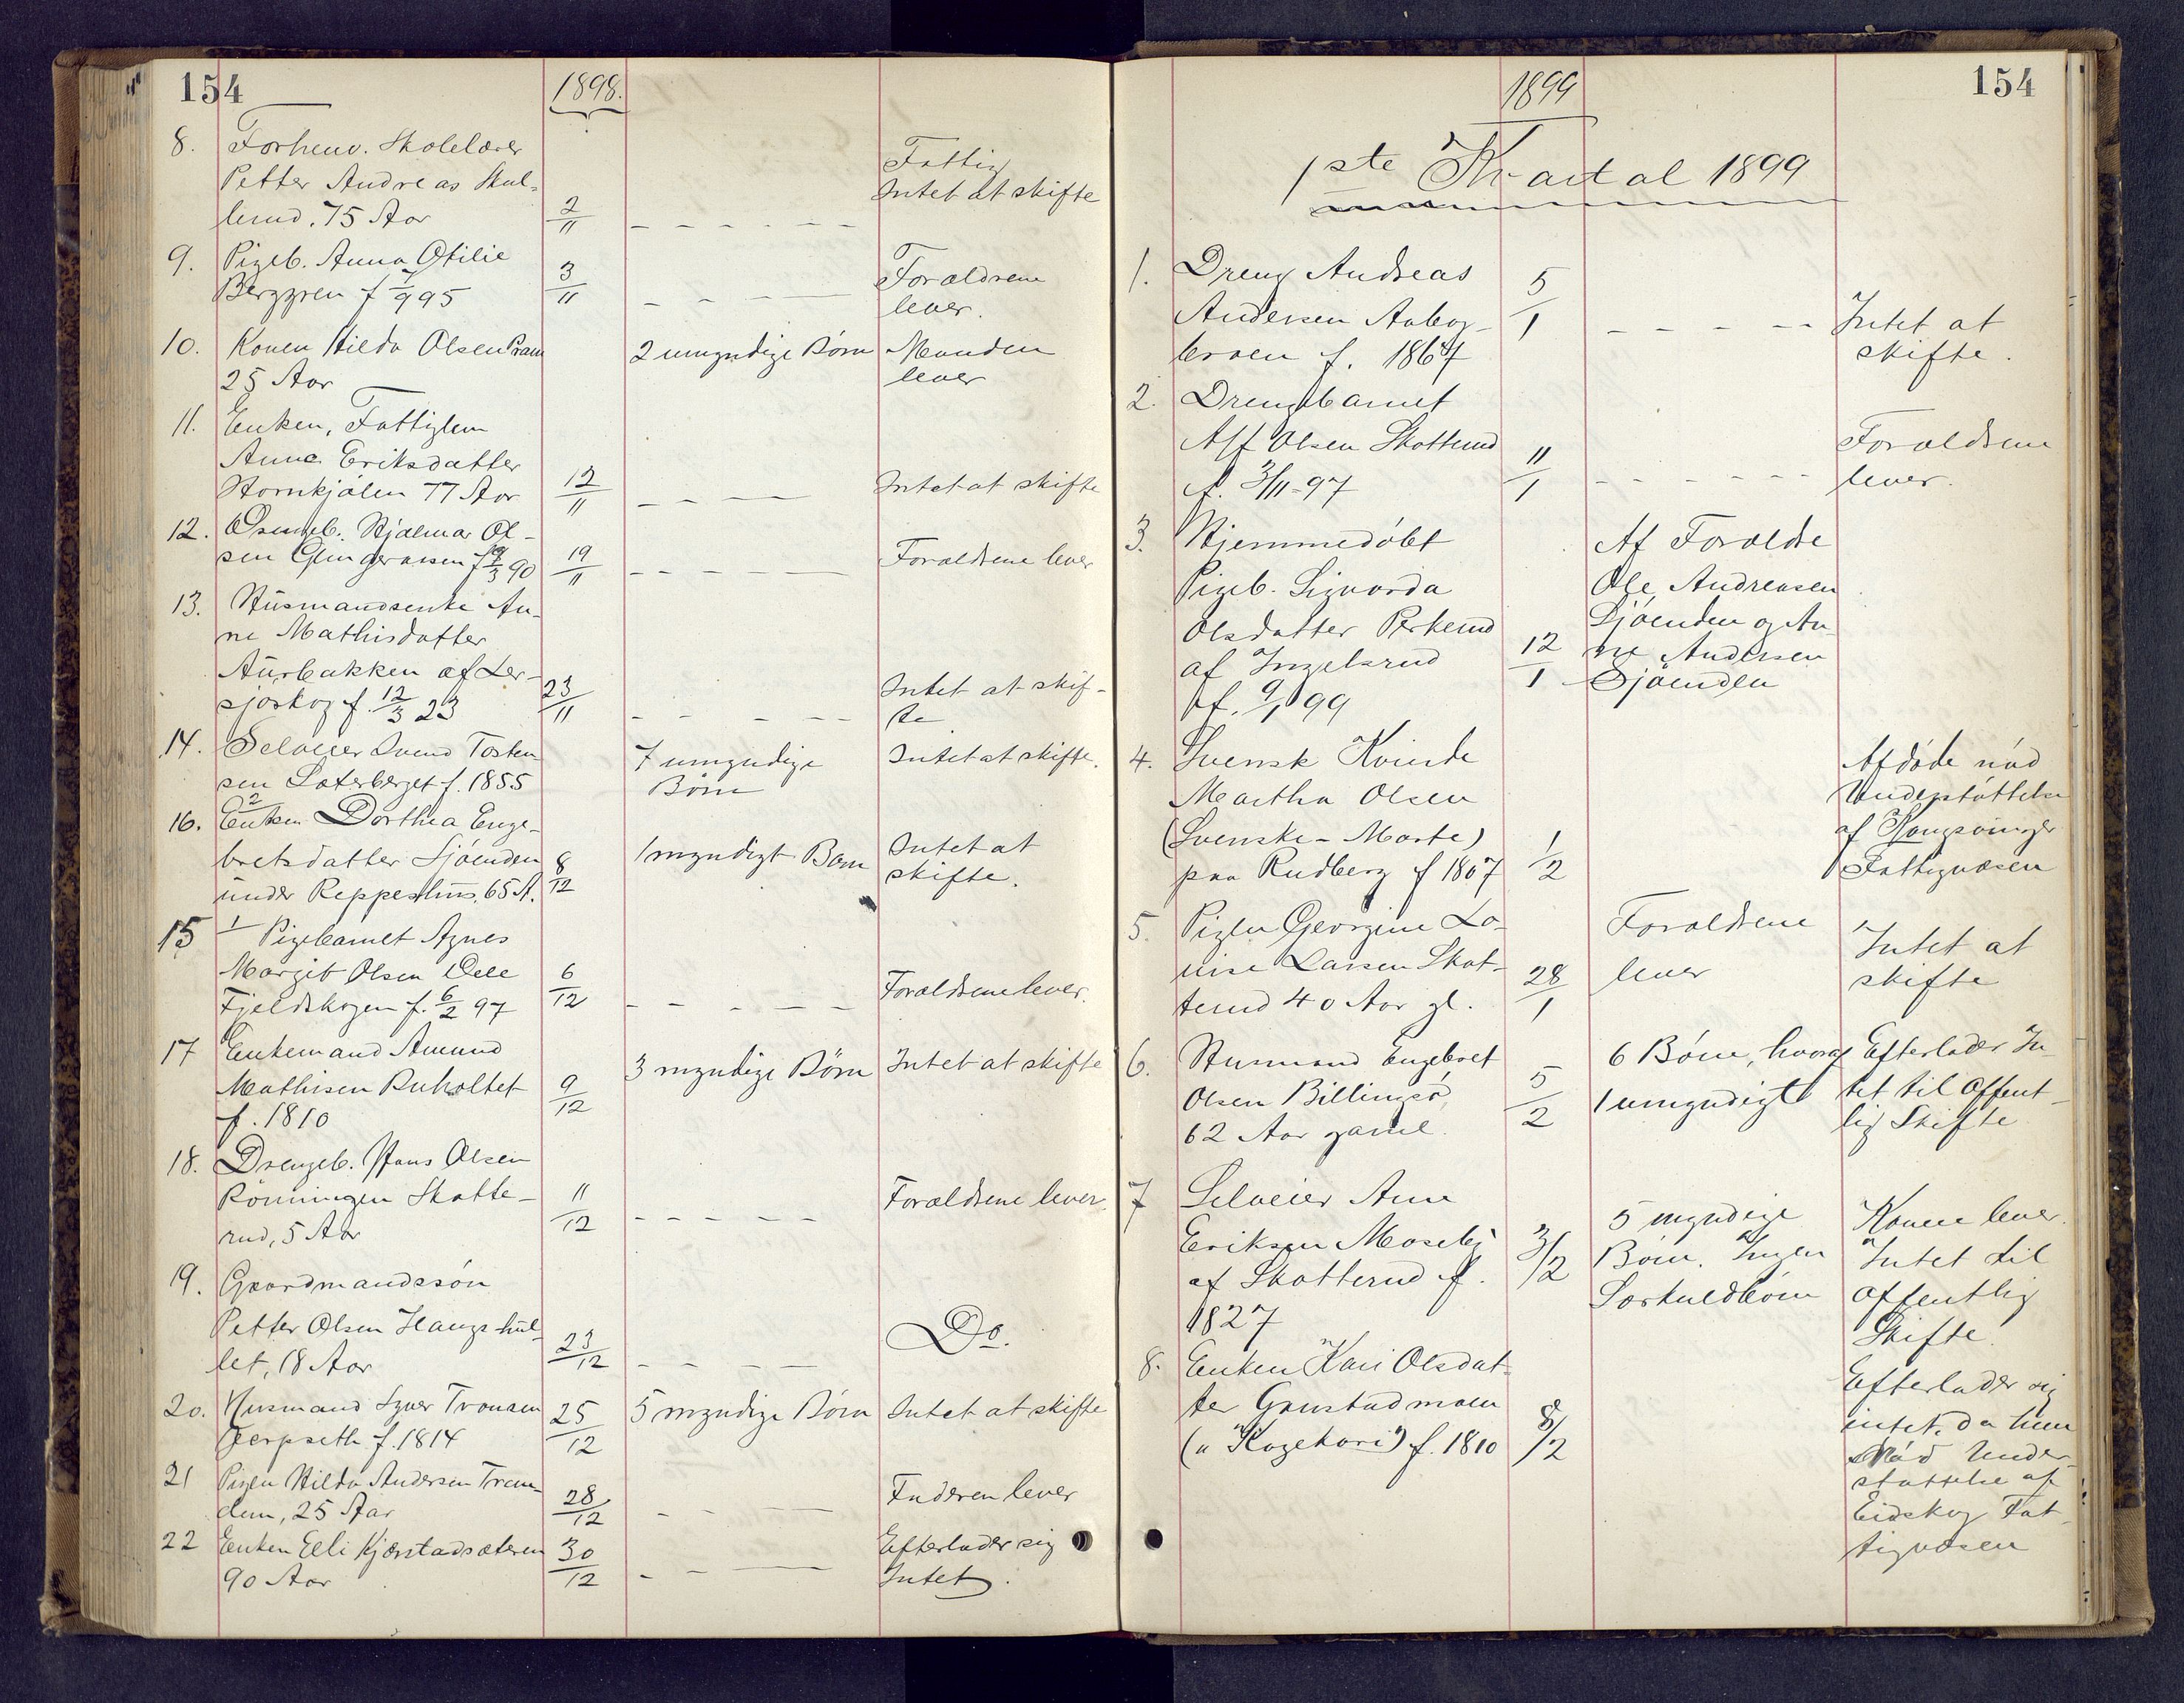 154
1898.
8. Forhenv. Skolelærer
Petter Andreas Skul-
lerud, 75 Aar 2/11 - - - - - -
Fattig
Intet at skifte
9. Pigeb. Anna Otilie
Berggren f 1/9 95 3/11 - - - -
Forældrene
lever.
10. Konen Hilda Olsen Pram
25 Aar
2 umyndige Børn
Manden
lever
11. Enken, Fattiglem
Anne Eriksdatter
Hornkjølen 77 Aar 12/11 - - - Intet at skifte
12. Drengeb. Hjalmar Ol-
sen 90 19/11 - - - - Forældrene lever
13. Husmandsenke An-
ne Mathisdatter
Aurbakken af Ler-
sjøskog f. 12/3 23 23/11 - - - -
Intet at skif-
te
14. Selveier Svend Tosten
sen Sæterberget f. 1855
7 umyndige
Børn
Intet at skifte.
16. 2 Enken Dorthea Enge-
bretsdatter Sjøenden
under Reppeshus, 65 A. 8/12
1 myndigt Barn
Intet at
skifte.
15 1 Pigebarnet Agnes
Margit Olsen
Fjeldskogen f. 6/2 97 6/12 - - - - -
Forældrene lever.
17 Enkemand Amund
Mathisen Buholtet
f. 1810 9/12
3 myndige Børn Intet at skifte
18. Drengeb. Hans Olsen
Rönningen Skotte-
rud, 5 Aar 11/12 - - - - -
Forældrene lever.
19. Gaardmandssön
Petter Olsen
let, 18 Aar 23/12 - - - -
Do.
20. Husmand Syver Tronsen
f. 1814 25/12 5 myndige Børn Intet at skifte
21 Pigen Hilda Andersen Tram-
dem, 25 Aar 28/12 - - - Faderen lever
22 Enken Eli Kjærstadsæteren
90 Aar 30/12 - - -
Efterlader sig
Intet.
1899
154
1ste Kvartal 1899
1. Dreng Andreas
Andersen Aabog-
braaen f. 1867 5/1 - - - - -
Intet at
skifte.
2. Drengebarnet
Alf Olsen Skotterud
f. 3/11-97 11/1 - - - - - -
Forældrene
lever.
3. Hjemmedøbt
Pigeb. Sigvarda
Olsdatter Perkerud
af Ingelsrud
f. 9/1 99 12/1
Af Forældre
Ole Andreasen
Sjøenden og An-
ne Andersen
Sjøenden
4. Svensk Kvinde
Martha Olsen
(Svenske-Marte)
paa Rudberg f 1807 1/2
Afdøde nød
Understøttelse
af Kongsvinger
Fattigvæsen
5. Pigen Georgine Lo-
uise Larsen Skot-
terud 40 Aar gl. 28/1
Forældrene
lever
Intet at
skifte
6. Husmand Engebret
Olsen Billingsø,
62 Aar gamel. 5/2
6 Børn, hvoraf
1 umyndigt
Efterlader In-
tet til Offent-
lig Skifte
7 Selveier Arne
Eriksen Moseby
af Skotterud f.
1827 3/2
5 myndige
Børn. Ingen
Særkuldbørn
Konen lever.
Intet til
offentlig
Skifte.
8. Enken Kari Olsdat-
ter Grustadmoen
("Kogekari") f. 1810 8/2
Efterlader sig
intet, da hun
nød Under-
støttelse af
Eidskog Fat-
tigvæsen